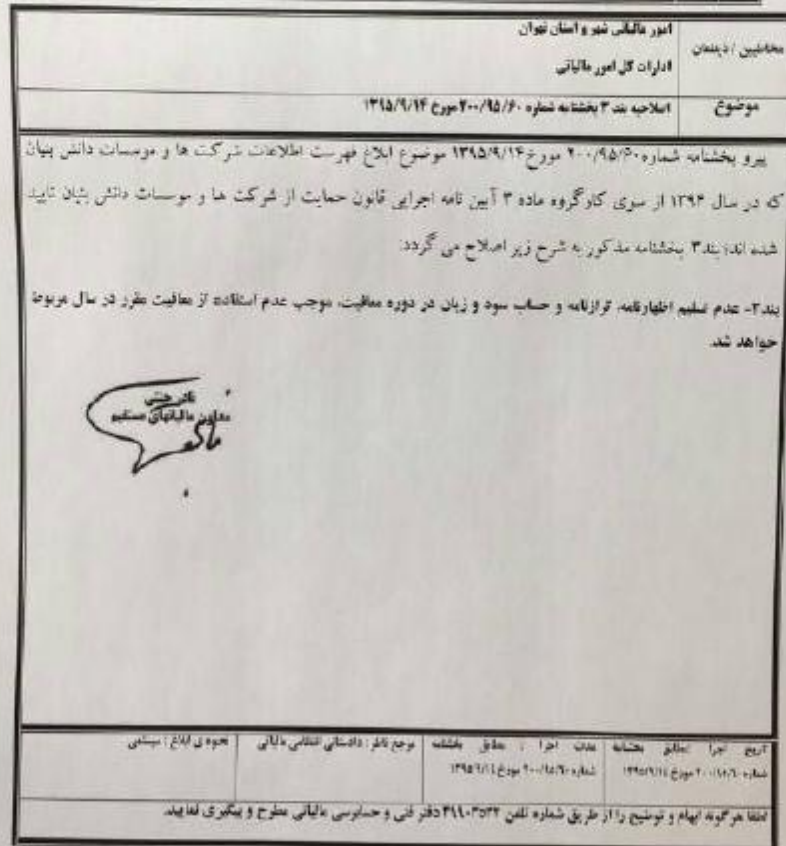 مخاطبین / ذینفعان
امور مالیاتی شهر و استان تهران
ادارات کل امور مالیاتی
موضوع
اصلاحیه بند ۳ بخشنامه شماره ۲۰۰/۹۵/۶۰ مورخ ۱۳۹۵/۹/۱۴
پیرو بخشنامه شماره ۲۰۰/۹۵/۶۰ مورخ ۱۳۹۵/۹/۱۴ موضوع ابلاغ فهرست اطلاعات شرکت ها و موسسات دانش بنیان
که در سال ۱۳۹۴ از سوی کارگروه ماده ۳ آیین نامه اجرایی قانون حمایت از شرکت ها و موسسات دانش بنیان تایید
شده اند؛ بند ۳ بخشنامه مذکور به شرح زیر اصلاح می گردد:
بند۳- عدم تسلیم اظهارنامه، ترازنامه و حساب سود و زیان در دوره معافیت، موجب عدم استفاده از معافیت مقرر در سال مربوط
خواهد شد.
نادر جنتی
معاون مالیاتهای مستقیم
تاریخ اجرا : مطابق بخشنامه
شماره ۲۰۰/۹۵/۶۰ مورخ ۱۳۹۵/۹/۱۴
مدت اجرا : مطابق بخشنامه
شماره ۲۰۰/۹۵/۶۰ مورخ ۱۳۹۵/۹/۱۴
مرجع ناظر : دادستانی انتظامی مالیاتی
نحوه ی ابلاغ : سیستمی
لطفا هر گونه ابهام و توضیح را از طریق شماره تلفن ۳۹۹۰۳۵۲۲ دفتر فنی و حسابرسی مالیاتی مطرح و پیگیری نمایید.